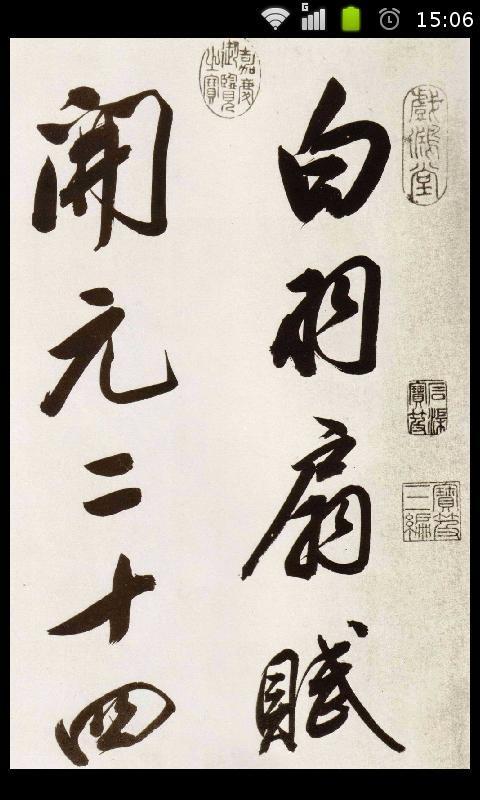 15:06
白羽扇賦
開元二十四
戲鴻堂
嘉慶御覽之寶
石渠寶笈
寶笈三編